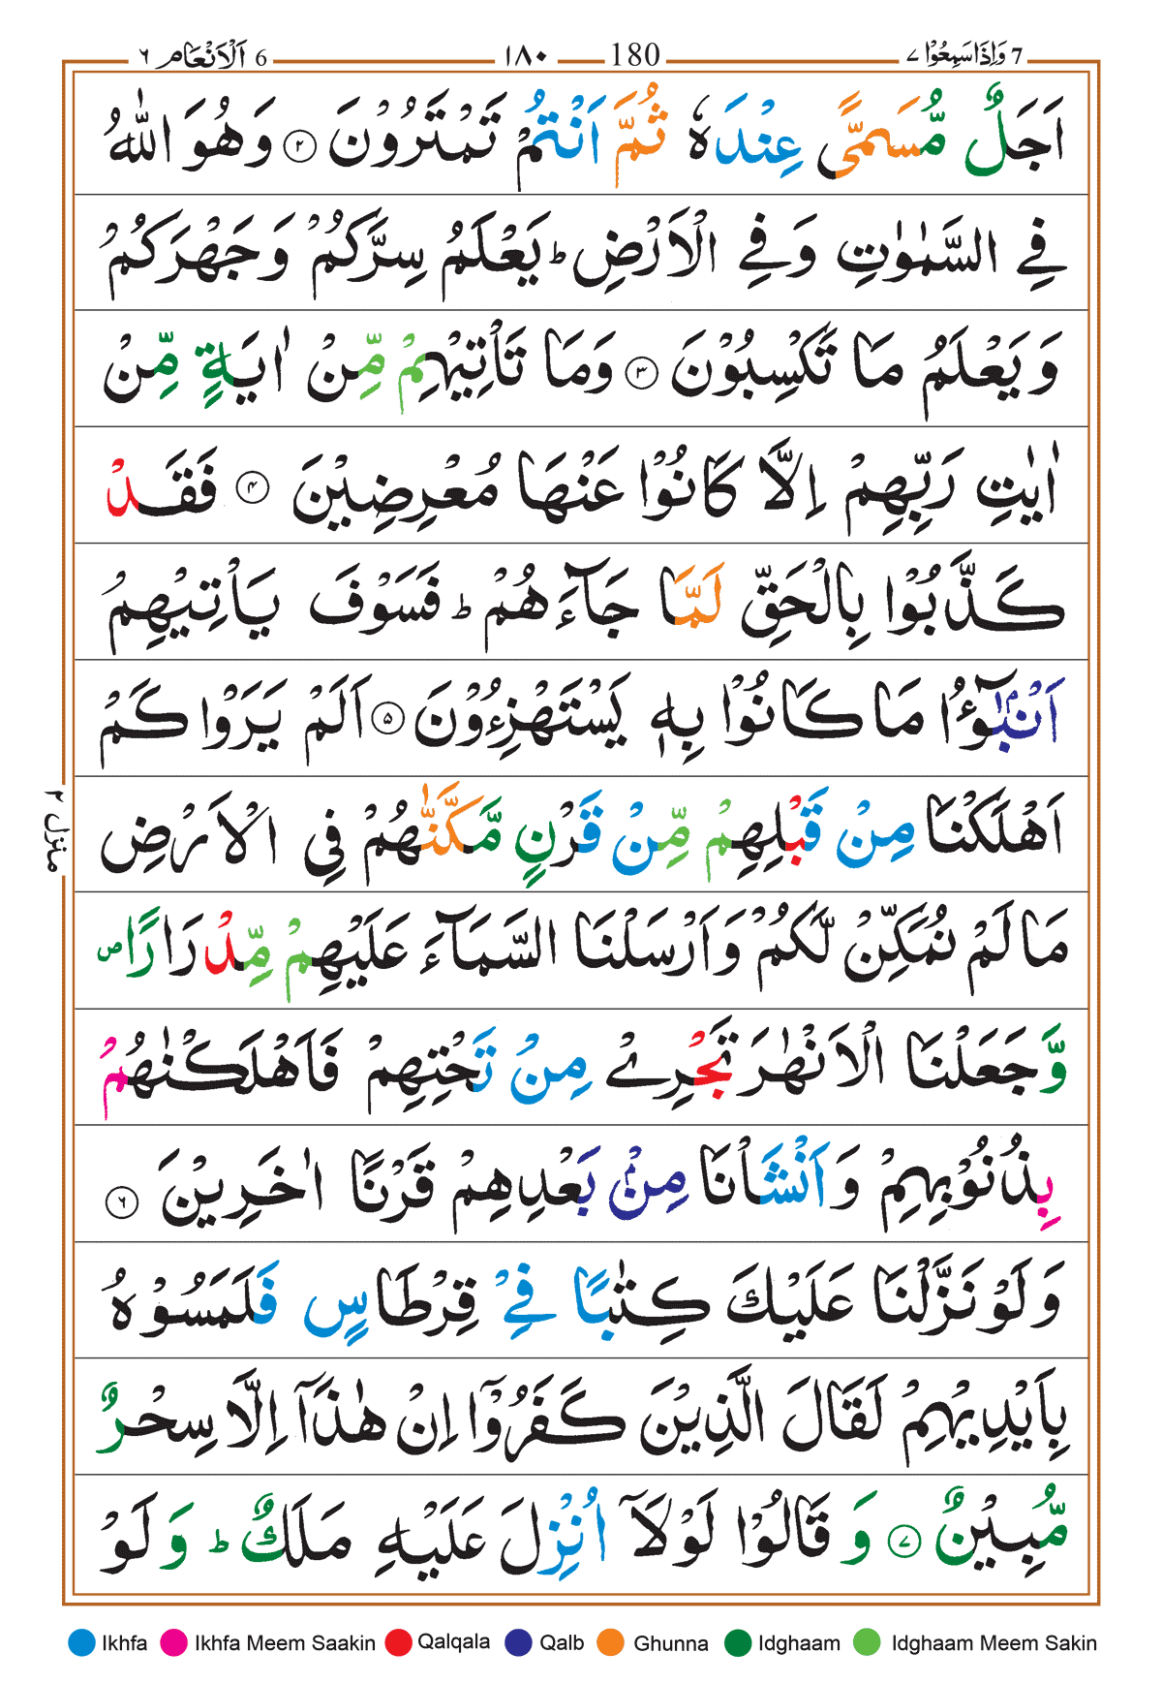 6 اَلْاَنْعَام ٦
١٨٠
180
7 وَاِذَا سَمِعُوْا ٧
اَجَلٌ مُّسَمًّى عِنْدَهٗ ثُمَّ اَنْتُمْ تَمْتَرُوْنَ ۝٢ وَهُوَ اللّٰهُ
فِي السَّمٰوٰتِ وَفِي الْاَرْضِ ؕ يَعْلَمُ سِرَّكُمْ وَجَهْرَكُمْ
وَيَعْلَمُ مَا تَكْسِبُوْنَ ۝٣ وَمَا تَاْتِيْهِمْ مِّنْ اٰيَةٍ مِّنْ
اٰيٰتِ رَبِّهِمْ اِلَّا كَانُوْا عَنْهَا مُعْرِضِيْنَ ۝٤ فَقَدْ
كَذَّبُوْا بِالْحَقِّ لَمَّا جَآءَهُمْ ؕ فَسَوْفَ يَاْتِيْهِمْ
اَنْۢبٰٓؤُا مَا كَانُوْا بِهٖ يَسْتَهْزِءُوْنَ ۝٥ اَلَمْ يَرَوْا كَمْ
اَهْلَكْنَا مِنْ قَبْلِهِمْ مِّنْ قَرْنٍ مَّكَّنّٰهُمْ فِي الْاَرْضِ
مَا لَمْ نُمَكِّنْ لَّكُمْ وَاَرْسَلْنَا السَّمَآءَ عَلَيْهِمْ مِّدْرَارًا ص
وَّجَعَلْنَا الْاَنْهٰرَ تَجْرِيْ مِنْ تَحْتِهِمْ فَاَهْلَكْنٰهُمْ
بِذُنُوْبِهِمْ وَاَنْشَاْنَا مِنْۢ بَعْدِهِمْ قَرْنًا اٰخَرِيْنَ ۝٦
وَلَوْ نَزَّلْنَا عَلَيْكَ كِتٰبًا فِيْ قِرْطَاسٍ فَلَمَسُوْهُ
بِاَيْدِيْهِمْ لَقَالَ الَّذِيْنَ كَفَرُوْٓا اِنْ هٰذَآ اِلَّا سِحْرٌ
مُّبِيْنٌ ۝٧ وَقَالُوْا لَوْلَآ اُنْزِلَ عَلَيْهِ مَلَكٌ ؕ وَلَوْ
منزل ٢
Ikhfa Ikhfa Meem Saakin Qalqala Qalb Ghunna Idghaam Idghaam Meem Sakin